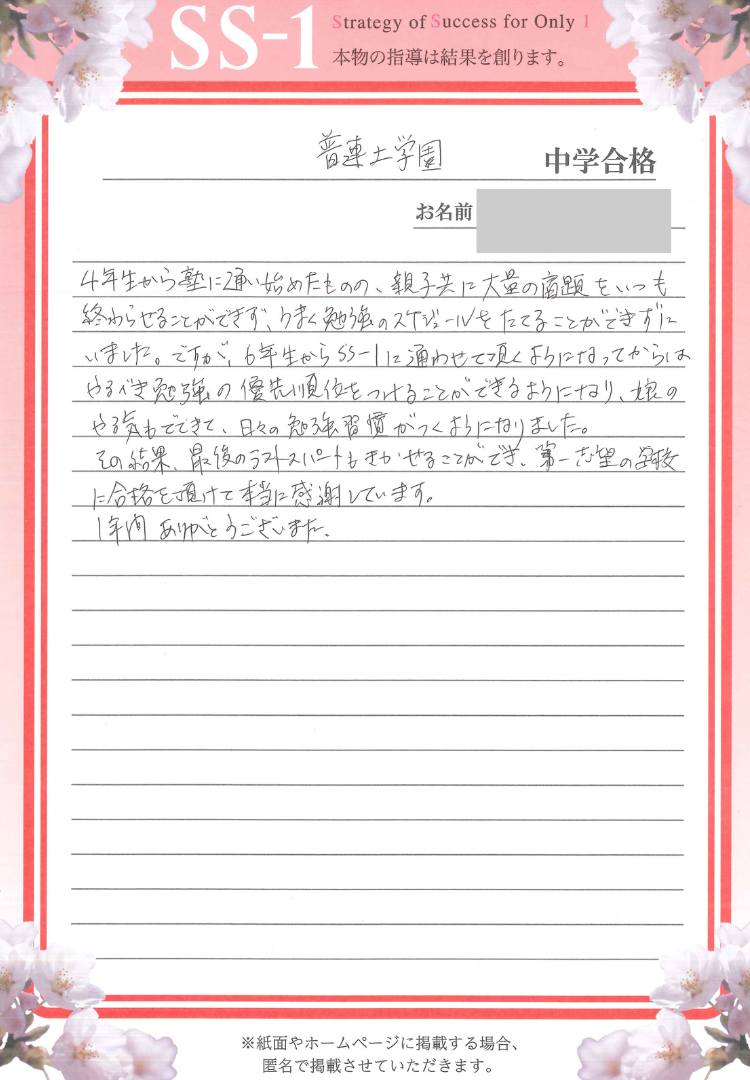 SS-1
Strategy of Success for Only 1
本物の指導は結果を創ります。
普連土学園 中学合格
お名前
4年生から塾に通い始めたものの、親子共に大量の宿題をいつも
終わらせることができず、うまく勉強のスケジュールをたてることができずに
いました。ですが、6年生からSS-1に通わせて頂くようになってからは
やるべき勉強の優先順位をつけることができるようになり、娘の
やる気もでてきて、日々の勉強習慣がつくようになりました。
その結果、最後のラストスパートもきかせることができ、第一志望の学校
に合格を頂けて本当に感謝しています。
1年間ありがとうございました。
※紙面やホームページに掲載する場合、
匿名で掲載させていただきます。